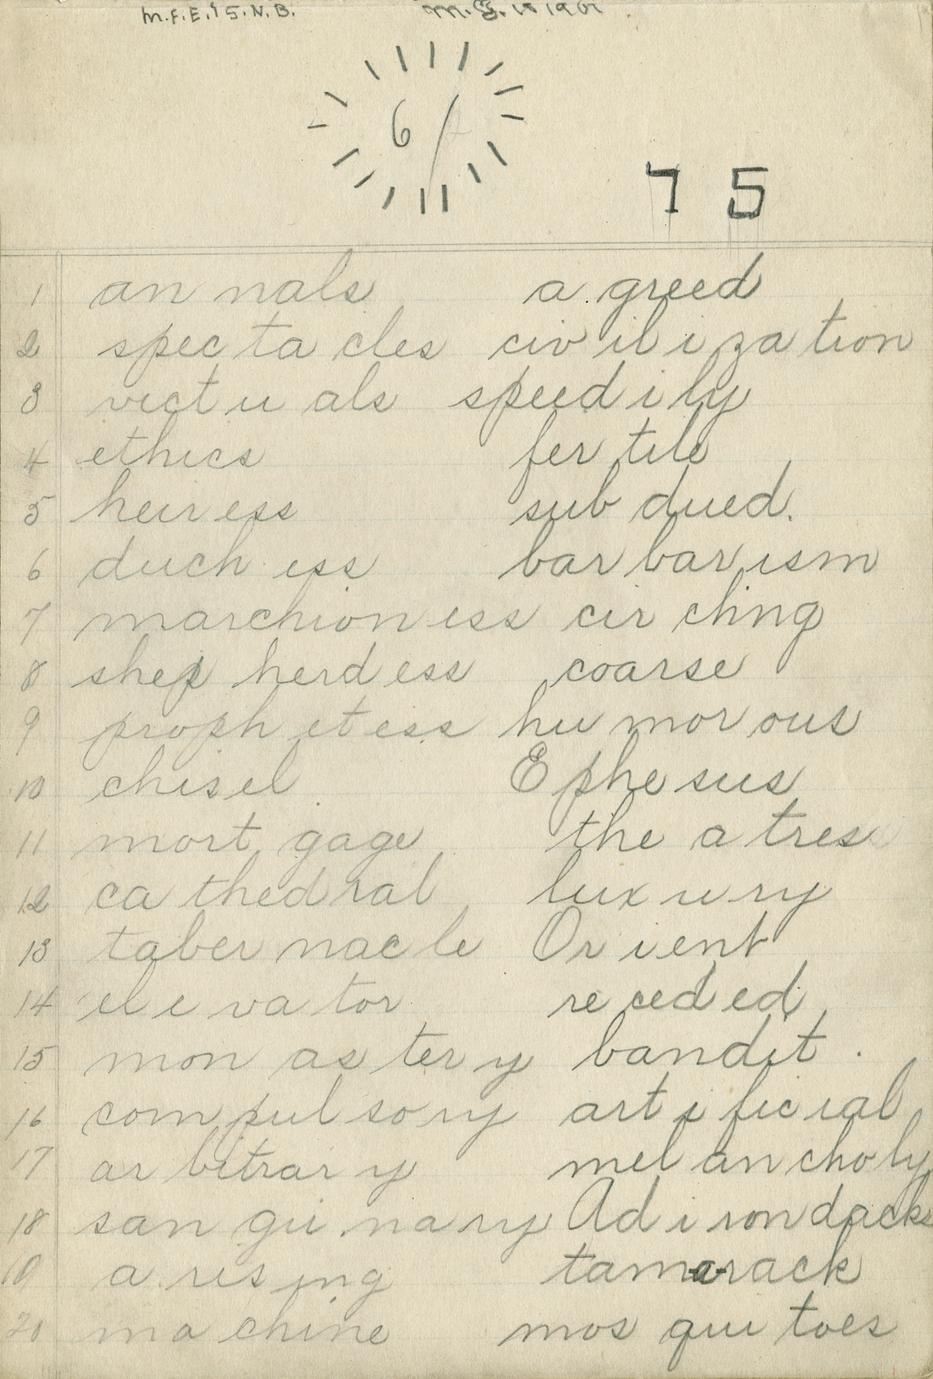 M.F.E. 15. N.B.
6
75
1 an nals a greed
2 spec ta cles civ il i za tion
3 vict u als speed i ly
4 ethics fer tile
5 heir ess sub dued.
6 duch ess bar bar ism
7 marchion ess cir cling
8 shep herd ess coarse
9 proph et ess hu mor ous
10 chis el E phe sus
11 mort gage the a tres
12 ca thed ral lux u ry
13 taber nac le Or i ent
14 el e va tor re ced ed
15 mon as ter y bandit.
16 com pul so ry art i fic ial
17 ar bitrar y mel an choly
18 san gui na ry Ad i ron dacks
19 a ris ing tamarack
20 ma chine mos qui toes